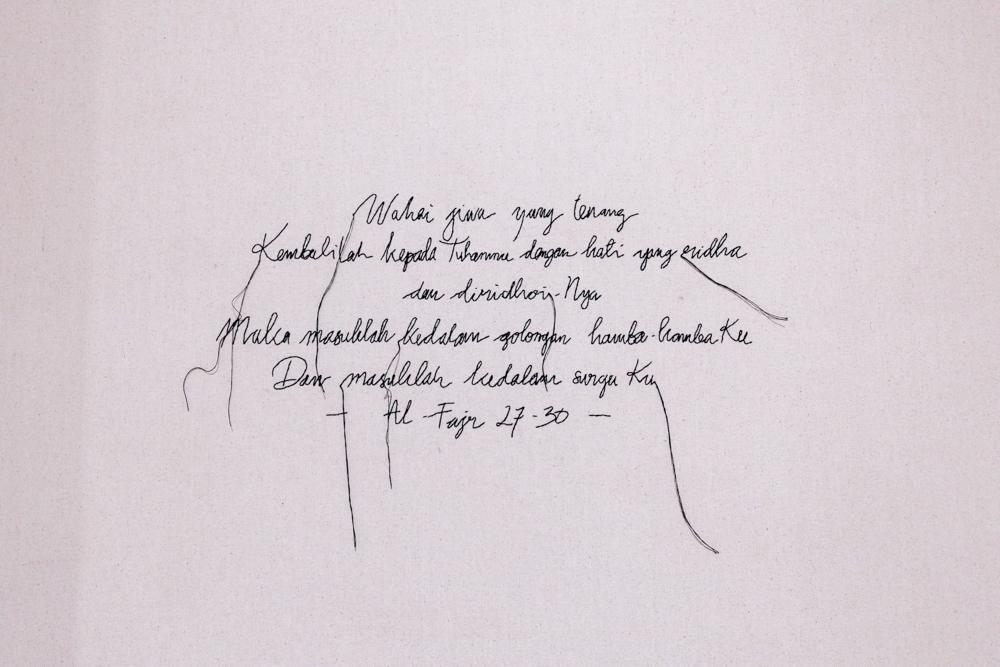 Wahai jiwa yang tenang
Kembalilah kepada Tuhanmu dengan hati yang ridha
dan diridhoi-Nya
Maka masuklah kedalam golongan hamba-hamba Ku
Dan masuklah kedalam surga Ku
— Al-Fajr 27-30 —